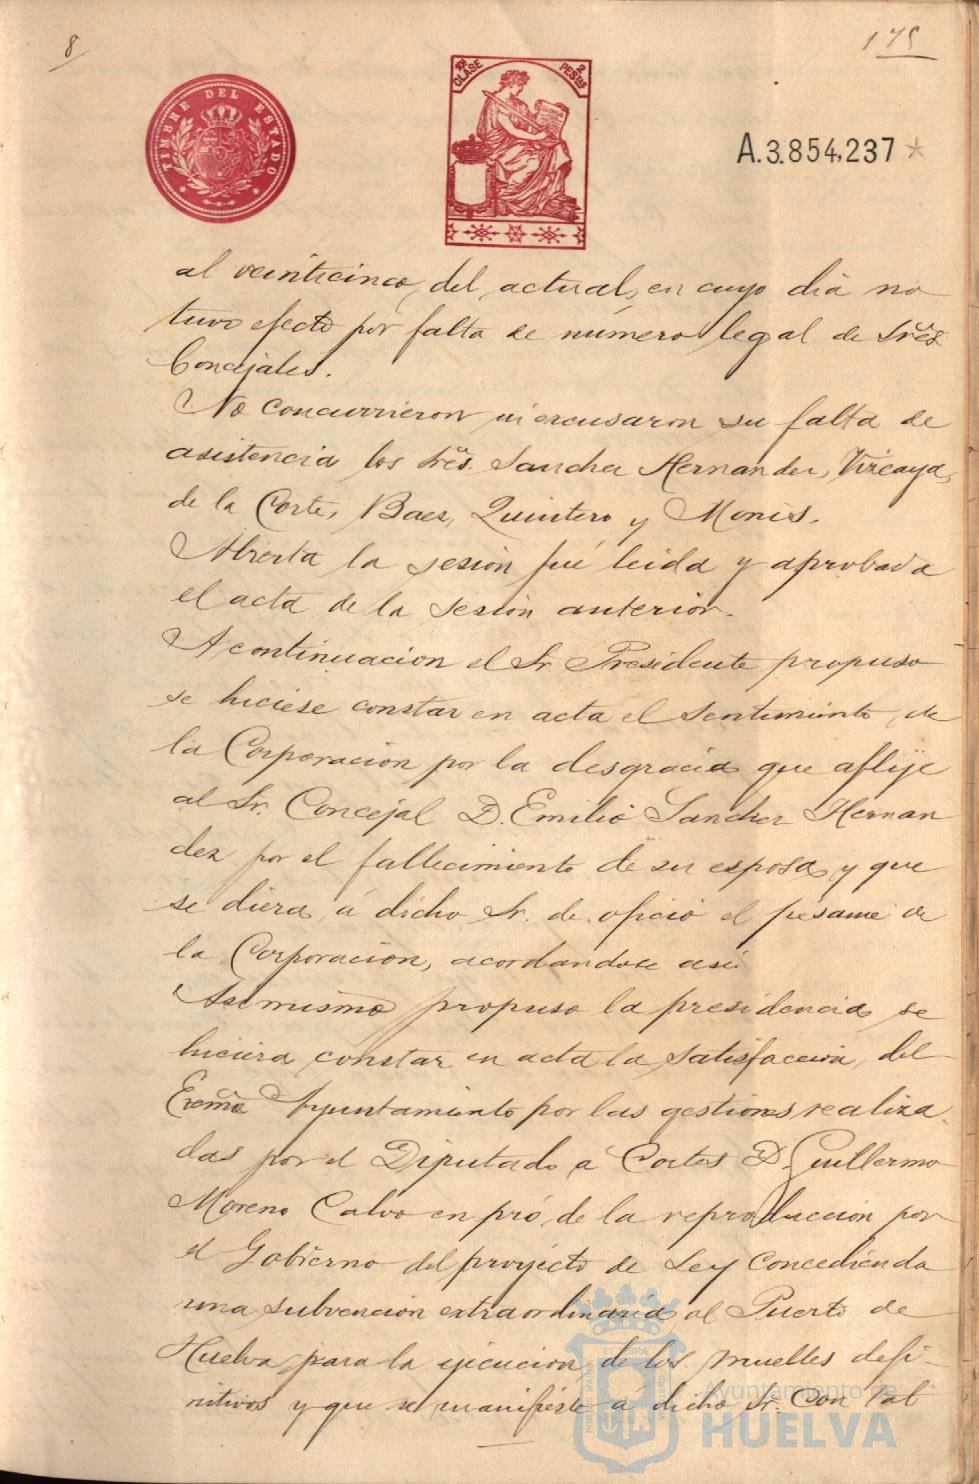 8
175
TIMBRE DEL ESTADO
10ª CLASE
2 PESETAS
A.3.854,237
al veinticinco, del actual, en cuyo dia no
tuvo efecto por falta de número legal de Srẽs
Concejales.
No concurrieron ni excusaron su falta de
asistencia los Srẽs. Sanchez Hernandez, Vizcaya,
de la Corte, Baez, Quintero y Monis.
Abierta la sesión fué leida y aprobada
el acta de la sesión anterior.
A continuación el Sr. Presidente propuso
se hiciese constar en acta el sentimiento de
la Corporación por la desgracia que aflije
al Sr. Concejal D. Emilio Sanchez Hernan
dez por el fallecimiento de su esposa y que
se diera á dicho Sr. de oficio el pésame de
la Corporación, acordandose asi.
Asimismo propuso la presidencia se
hiciera constar en acta la satisfacción del
Excmõ Ayuntamiento por las gestiones realiza-
das por el Diputado á Cortes D. Guillermo
Moreno Calvo en pró de la reproducción por
el Gobierno del proyecto de Ley concediendo
una subvención extraordinaria al Puerto de
Huelva para la ejecución de los muelles defi-
nitivos y que se manifieste á dicho Sr. con tal
Ayuntamiento de
HUELVA